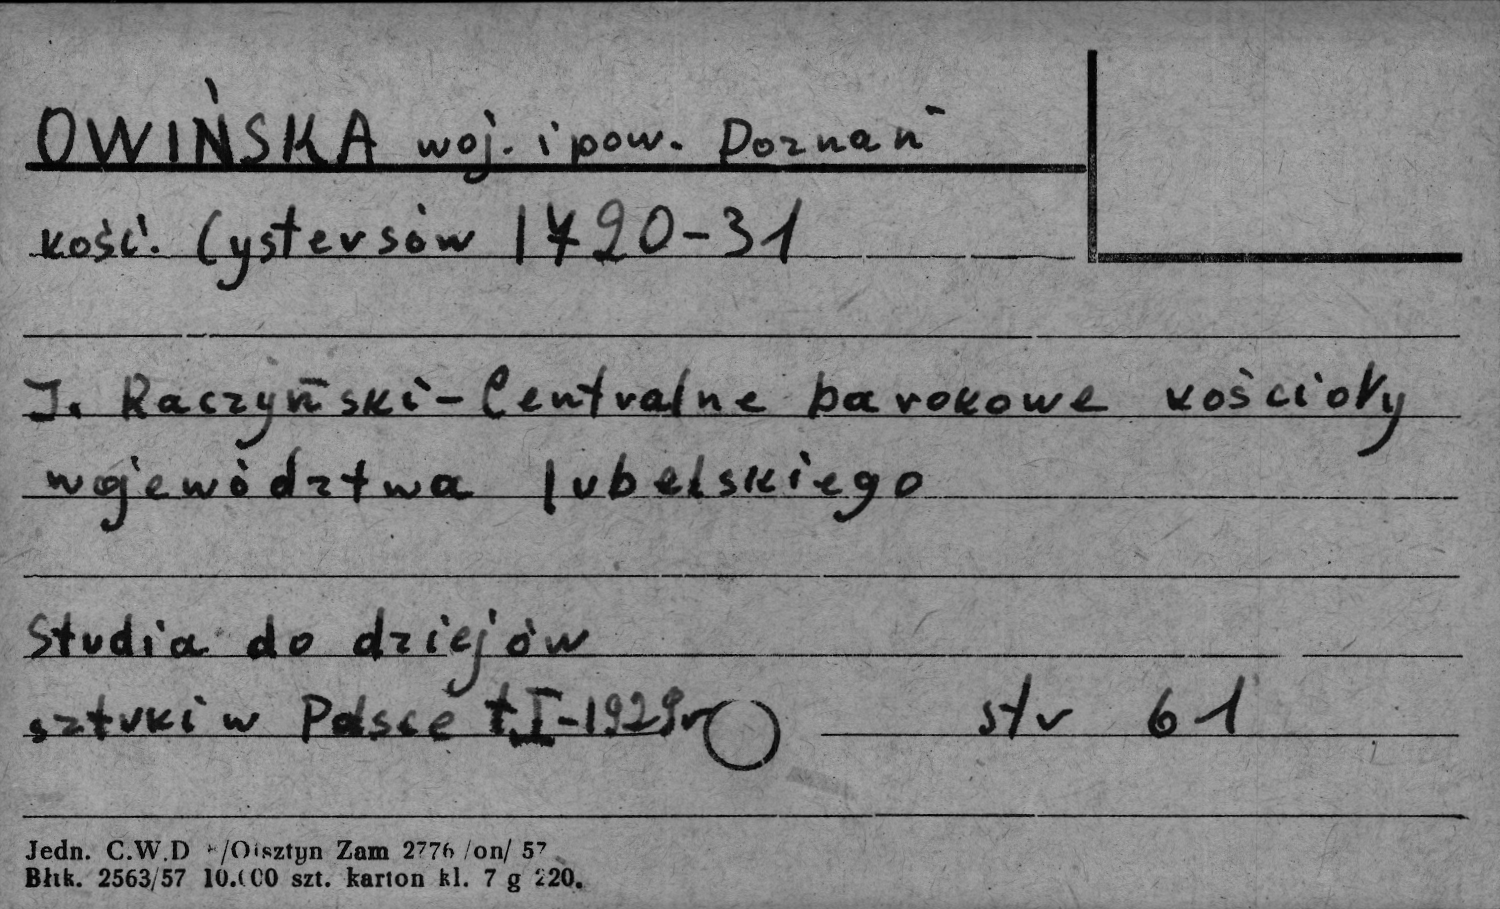 OWIŃSKA woj. i pow. Poznań
kość. Cystersów 1720-31
J. Raczyński - Centralne barokowe kościoły
województwa lubelskiego
Studia do dziejów
sztuki w Polsce t.I-1929r
str 61
Jedn. C.W.D /Olsztyn Zam 2776 /on/ 57
Błtk. 2563/57 10.000 szt. karton kl. 7 g 220.